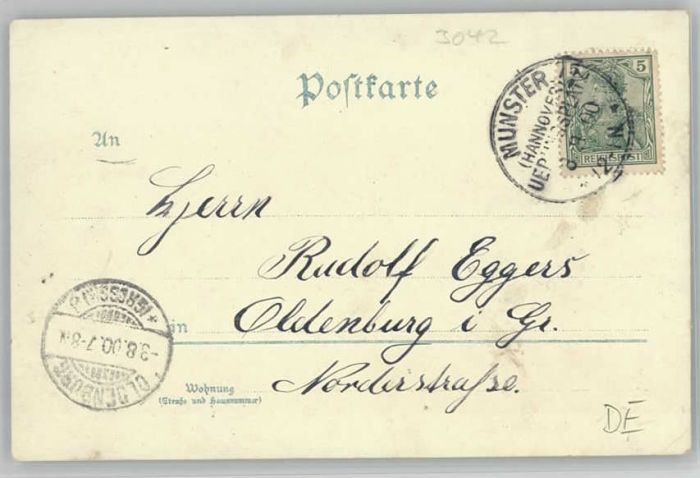 3042
Postkarte
5
REICHSPOST
MUNSTER
(HANNOVER)
UEBUNGSPLATZ
8.00
12-1N
An
Herrn
Rudolf Eggers
in
Oldenburg i Gr.
Norderstraße.
Wohnung
(Straße und Hausnummer)
OLDENBURG
3.8.00.7-8N
*(GROSSH.)*
DE